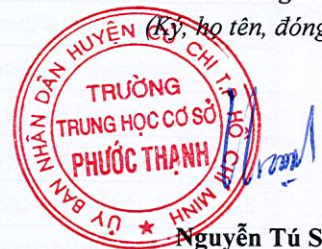 (Ký, họ tên, đóng
ỦY BAN NHÂN DÂN HUYỆN CỦ CHI T.P HỒ CHÍ MINH
TRƯỜNG
TRUNG HỌC CƠ SỞ
PHƯỚC THẠNH
★
Nguyễn Tú S